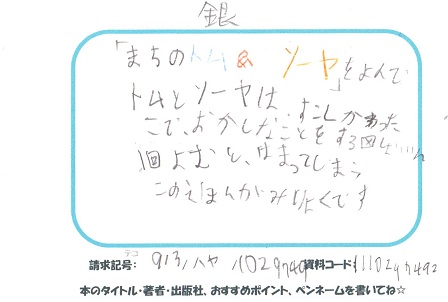 銀
「まちのトム & ソーヤ」をよんで
トムとソーヤは すこしかわった
こで、おかしなことをする
1回よむと、はまってしまう
このえほんがみりょくです
請求記号: 913/ハヤ
資料コード:
本のタイトル・著者・出版社、おすすめポイント、ペンネームを書いてね☆